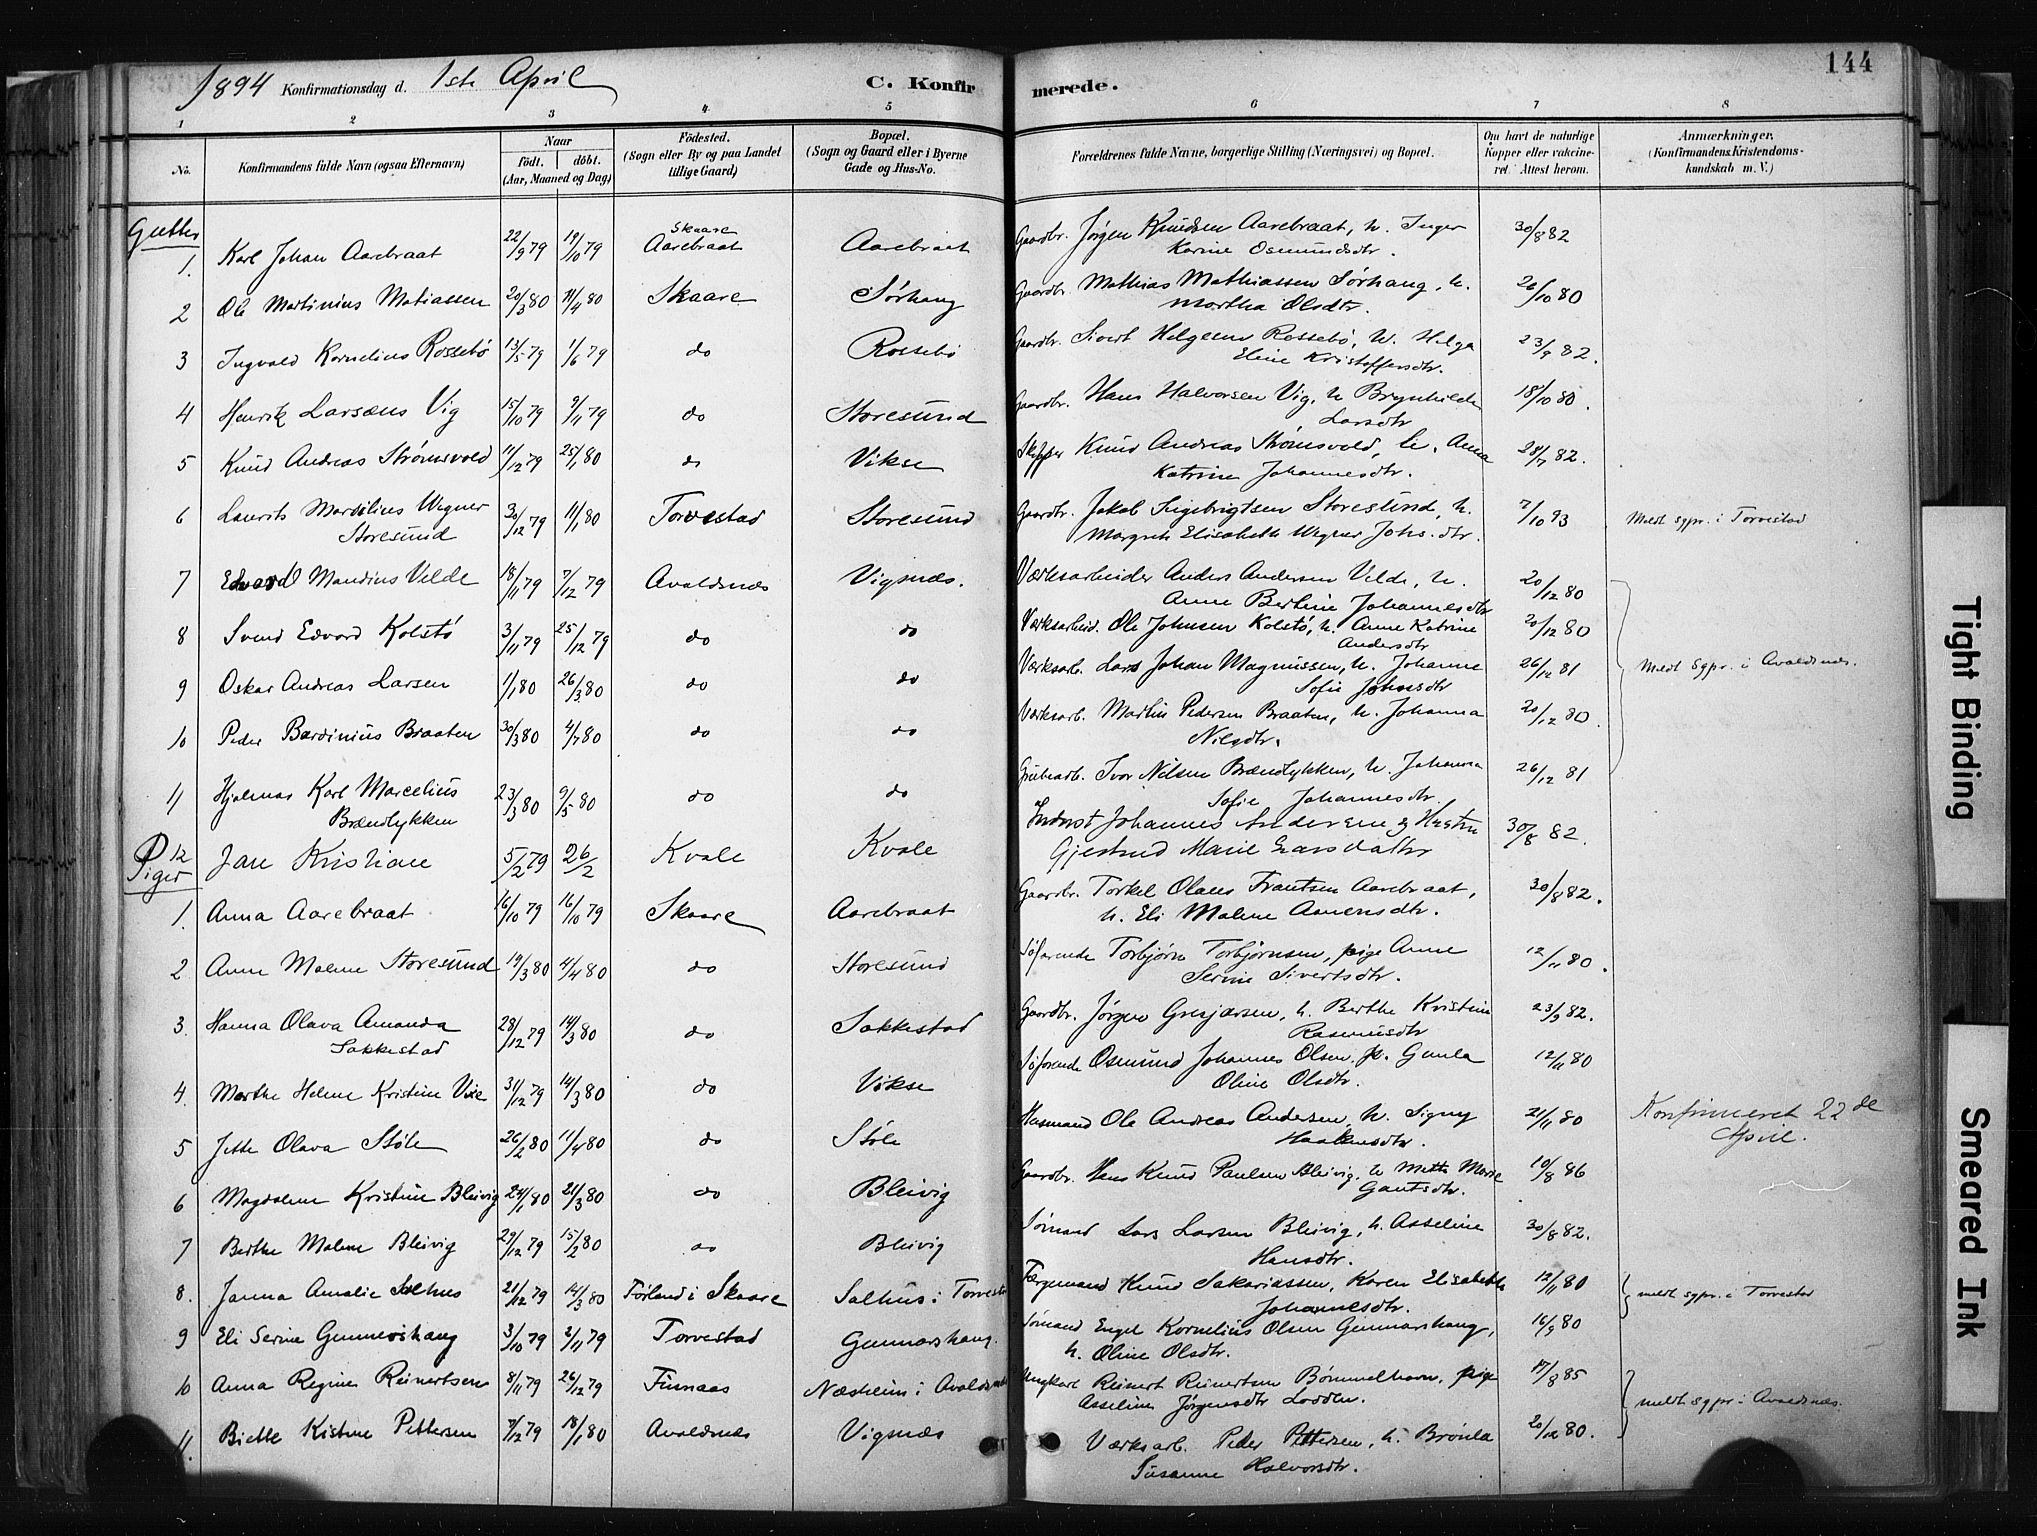 144
1894 Konfirmationsdag d. 1ste April C. Konfirmerede.
1 2 3 4 5 6 7 8
No. Konfirmandens fulde Navn (ogsaa Efternavn) Naar födt. döbt. (Aar, Maaned og Dag) Födested. (Sogn eller By og paa Landet tillige Gaard) Bopæl. (Sogn og Gaard eller i Byerne Gade og Hus-No. Forældrenes fulde Navne, borgerlige Stilling (Næringsvei) og Bopæl. Om havt de naturlige Kopper eller vakcineret. Attest herom. Anmærkninger. (Konfirmandens Kristendomskundskab m. V.)
Gutter
1. Karl Johan Aarebraat 22/9 79 19/10 79 Skaare Aarebraat Aarebraat Gaardbr. Jørgen Knudsen Aarebraat, h. Inger 30/8 82
Karine Osmundsdtr
2 Ole Martinius Matiassen 20/3 80 11/4 80 Skaare Sørhaug Gaardbr. Mathias Mathiassen Sørhaug, h. 26/10 80
Martha Olsdtr.
3 Ingvald Kornelius Rossebø 13/5 79 1/6 79 do Rossebø Gaardbr. Sivert Helgesen Rossebø, h. Helga 23/9 82.
Eline Kristoffersdtr.
4 Henrik Larsæus Vig 15/10 79 9/11 79 do Storesund Gaardbr. Hans Halvorsen Vig, h Brynhilde 18/10 80.
Larsdtr
5 Knud Andreas Strømsvold 11/12 79 25/1 80 do Vikse Skipper Knud Andreas Strømsvold, h. Anna 28/7 82.
Katrine Johannesdtr.
6 Laurits Marselius Wegner 30/12 79 11/1 80 Torvestad Storesund Gaardbr. Jakob Sigebrigtsen Storesund, h. 7/10 93 Meldt sgpr. i Torvestad
Storesund Margrete Elisabeth Wegner Johs.dtr.
7 Edvard Mandius Velde 18/11 79 7/12 79 Avaldsnæs Vigsnæs. Værksarbeider Anders Andersen Velde, h. 20/12 80
Anne Bertine Johannesdtr
8 Svend Edvard Kolstø 3/11 79 25/12 79 do do Værksarbeid. Ole Johnsen Kolstø, h. Anne Katrine 20/12 80
Andersdtr
9 Oskar Andreas Larsen 1/1 80 26/3 80 do do Værksarb. Lars Johan Magnussen, h. Johanne 26/12 81 Meldt Sgpr. i Avaldsnæs.
Sofie Johnsdtr
10 Peder Bardinius Braaten 30/3 80 4/7 80 do do Værksarb. Martin Pedersen Braaten, h. Johanna 20/12 80.
Nilsdtr.
11 Hjalmar Karl Marcelius 23/3 80 9/5 80 do do Grubearb. Ivar Nilsen Brændlykken, h. Johanna 26/12 81
Brændlykken Sofie Johannesdtr
12 Jan Kristian 5/2 79 26/2 Kvale Kvale Johannes Andersen & Hustru 30/8 82.
Gjertrud Marie Larsdatter
Piger
1. Anna Aarebraat 16/10 79 16/10 79 Skaare Aarebraat Gaardbr. Torkel Olaus Frantsen Aarebraat, 30/8 82.
h. Eli Malene Aanensdtr.
2 Anne Malene Storesund 19/3 80 4/4 80 do Storesund Søfarende Torbjørn Torbjørnsen, pige Anne 12/11 80.
Serine Sivertsdtr.
3. Hanna Olava Amanda 28/12 79 14/3 80 do Sakkestad Gaardbr. Jørgen Gresjarsen, h. Berthe Kristine 23/9 82.
Sakkestad Rasmusdtr
4. Marthe Helene Kristine Vixe 31/12 79 14/3 80 do Vikse Søfarende Osmund Johannes Olsen, p. Gunla 12/11 80
Oline Olsdtr.
5 Jette Olava Støle 26/2 80 11/4 80 do Støle Husmand Ole Andreas Andersen, h. Signy 21/11 80 Konfirmeret 22de
Haakensdtr. April.
6 Magdalene Kristine Bleivig 24/1 80 21/3 80 do Bleivig Gaardbr. Hans Knud Paulsen Bleivig, h Mette Marie 10/8 86
Gautsdtr.
7 Berthe Malene Bleivig 29/12 79 15/2 80 do Bleivig Sømand Lars Larsen Bleivig, h. Asseline 30/8 82.
Hansdtr.
8. Janna Amalie Salhus 21/12 79 14/3 80 Førland i Skaare Salhus i Torvestad Færgemand Knud Sakariassen, Karen Elisabeth 12/11 80 meldt sgpr. i Torvestad
Johannesdtr.
9 Eli Serine Gunnarshaug 3/10 79 2/11 79 Torvestad Gunnarshaug. Sømand Engel Kornelius Olsen Gunnarshaug, 16/9 80
h. Oline Olsdtr.
10 Anna Regine Reinertsen 8/11 79 26/12 79 Finnaas Næsheim i Avaldsnæs Ungkarl Reinert Reinertsen Bømmelhavn, pige 17/8 85
Asseline Jørgensdtr Lodden. meldt sgpr. i Avaldsnæs.
11. Biette Kistine Pettersen 7/12 79 18/1 80 Avaldsnæs Vigsnæs Værksarb. Peder Pettersen, h. Brønla 20/12 80.
Susanne Halvorsdtr.
Tight Binding
Smeared Ink